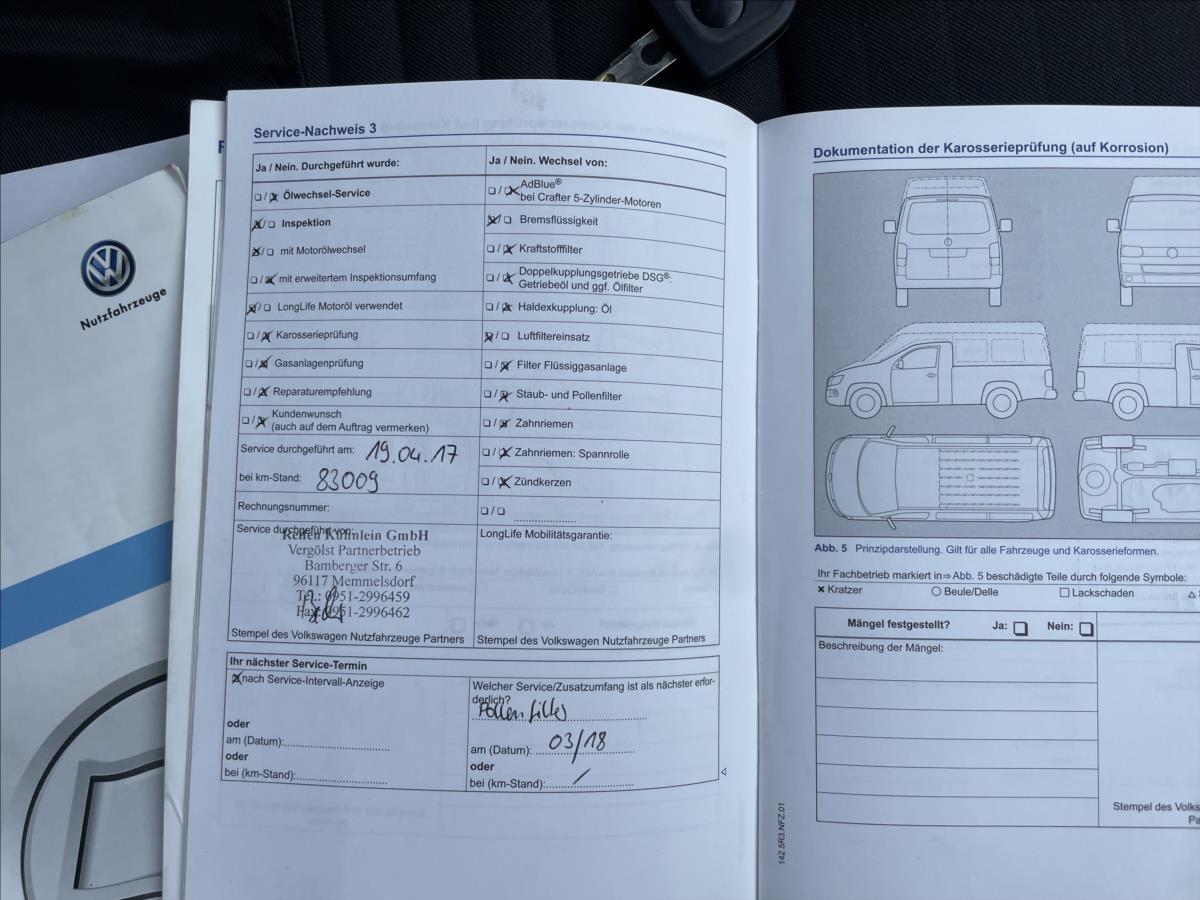 Nutzfahrzeuge
Service-Nachweis 3
Ja / Nein. Durchgeführt wurde:
Ja / Nein. Wechsel von:
Ölwechsel-Service
AdBlue®
bei Crafter 5-Zylinder-Motoren
Inspektion
Bremsflüssigkeit
mit Motorölwechsel
Kraftstofffilter
mit erweitertem Inspektionsumfang
Doppelkupplungsgetriebe DSG®:
Getriebeöl und ggf. Ölfilter
LongLife Motoröl verwendet
Haldexkupplung: Öl
Karosserieprüfung
Luftfiltereinsatz
Gasanlagenprüfung
Filter Flüssiggasanlage
Reparaturempfehlung
Staub- und Pollenfilter
Kundenwunsch
(auch auf dem Auftrag vermerken)
Zahnriemen
Service durchgeführt am: 19.04.17
Zahnriemen: Spannrolle
bei km-Stand: 83009
Zündkerzen
Rechnungsnummer:
Service durchgeführt von:
Reifen GmbH
Vergölst Partnerbetrieb
Bamberger Str. 6
96117 Memmelsdorf
Tel.: 0951-2996459
Fax: 0951-2996462
Stempel des Volkswagen Nutzfahrzeuge Partners
LongLife Mobilitätsgarantie:
Stempel des Volkswagen Nutzfahrzeuge Partners
Ihr nächster Service-Termin
nach Service-Intervall-Anzeige
oder
am (Datum):
oder
bei (km-Stand):
Welcher Service/Zusatzumfang ist als nächster erfor-
derlich?
Pollenfilter
am (Datum): 03/18
oder
bei (km-Stand): /
Dokumentation der Karosserieprüfung (auf Korrosion)
Abb. 5 Prinzipdarstellung. Gilt für alle Fahrzeuge und Karosserieformen.
Ihr Fachbetrieb markiert in⇒Abb. 5 beschädigte Teile durch folgende Symbole:
Kratzer
Beule/Delle
Lackschaden
Mängel festgestellt?
Ja:
Nein:
Beschreibung der Mängel:
Stempel des Volks
Pa
142.5R3.NFZ.01